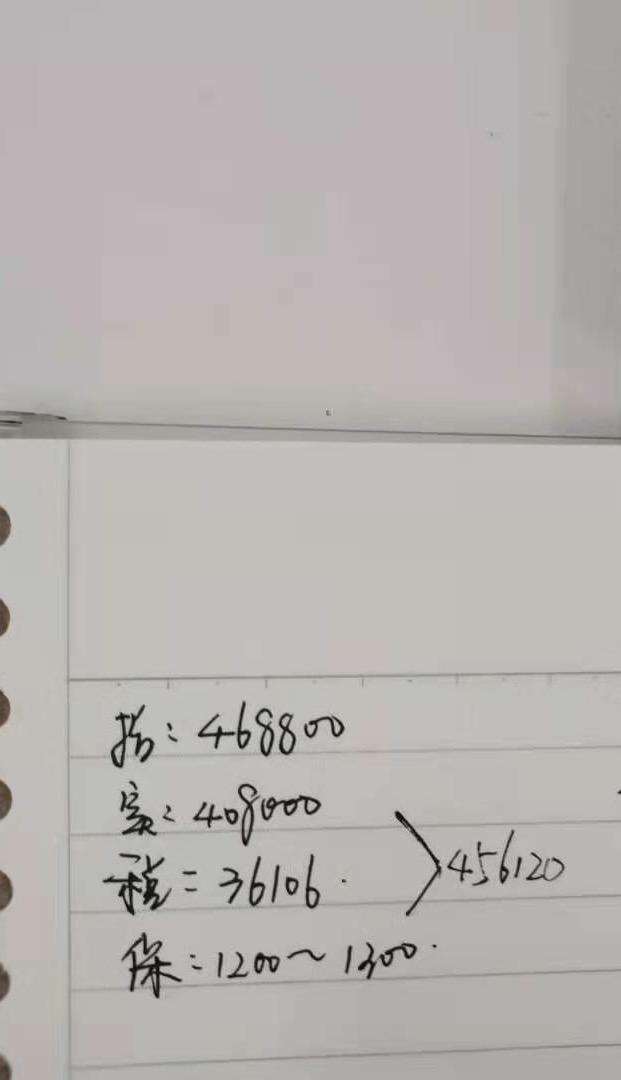 指：468800
实：408000
税：36106.
456120
保：1200～1300.